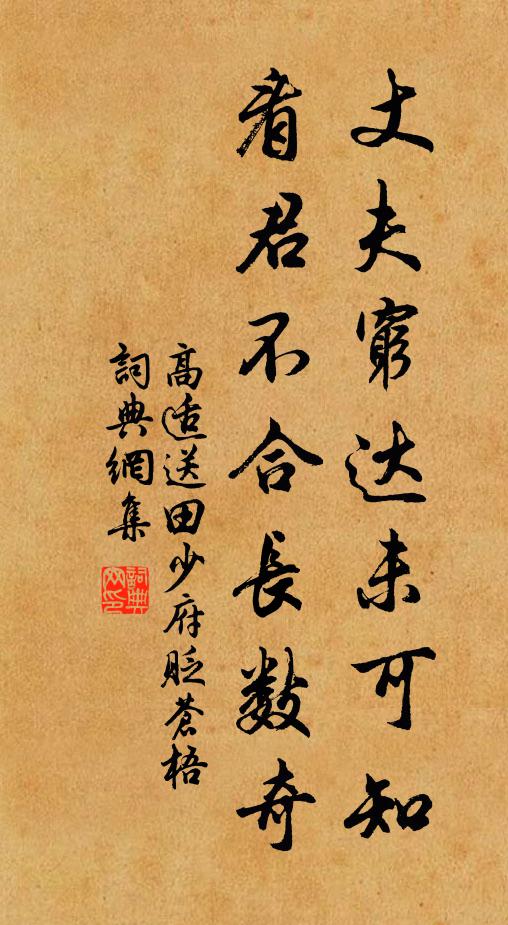 丈夫窮达未可知
看君不合長數奇
高适送田少府貶蒼梧
詞典網集
詞典
网印